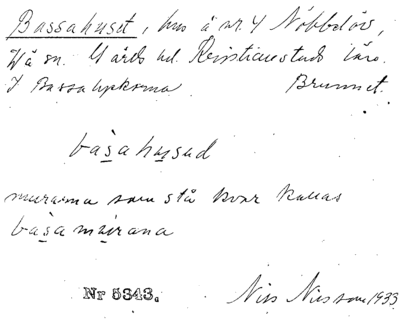 Bassahuset, hus å nr. 4 Nöbbelöv,
Vä sn. Gärds hd. Kristianstads län.
I Bassalyckorna. Brunnet.
bàsahusad
murarna som stå kvar kallas
bàsamúrana
Nr 5343. Nils Nilsson 1933